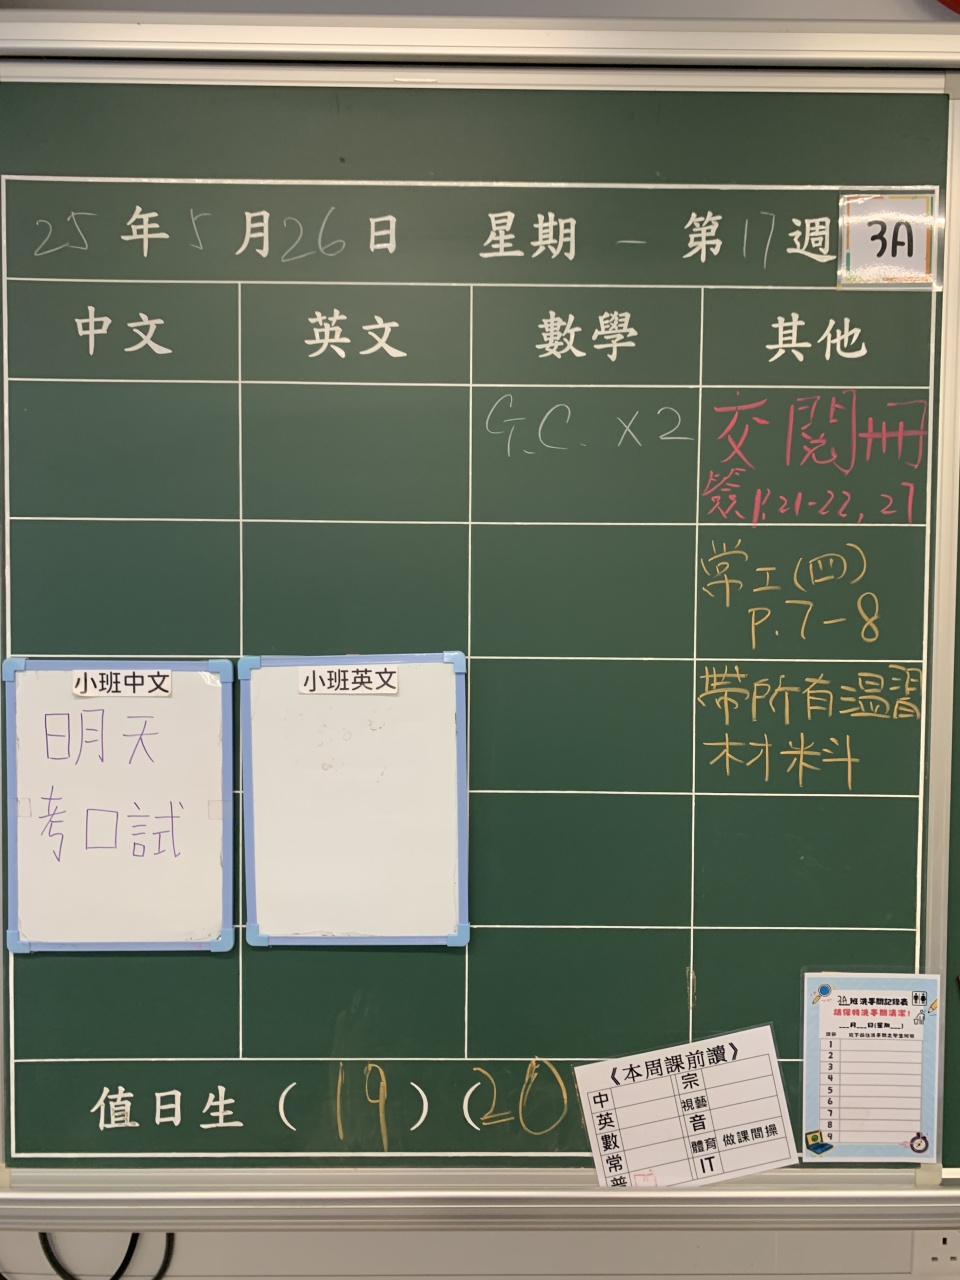 25年5月26日 星期一 第17週 3A
中文 英文 數學 其他
G.C. x2
交閱冊
簽p.21-22, 27
常工(四)
p.7-8
帶所有溫習
材料
小班中文
明天
考口試
小班英文
值日生(19)(20
《本周課前讀》
中 宗
英 視藝
數 音
常 體育 做課間操
普 IT
3A班洗手間記錄表
請保持洗手間清潔!
___月___日(星期___)
1
2
3
4
5
6
7
8
9